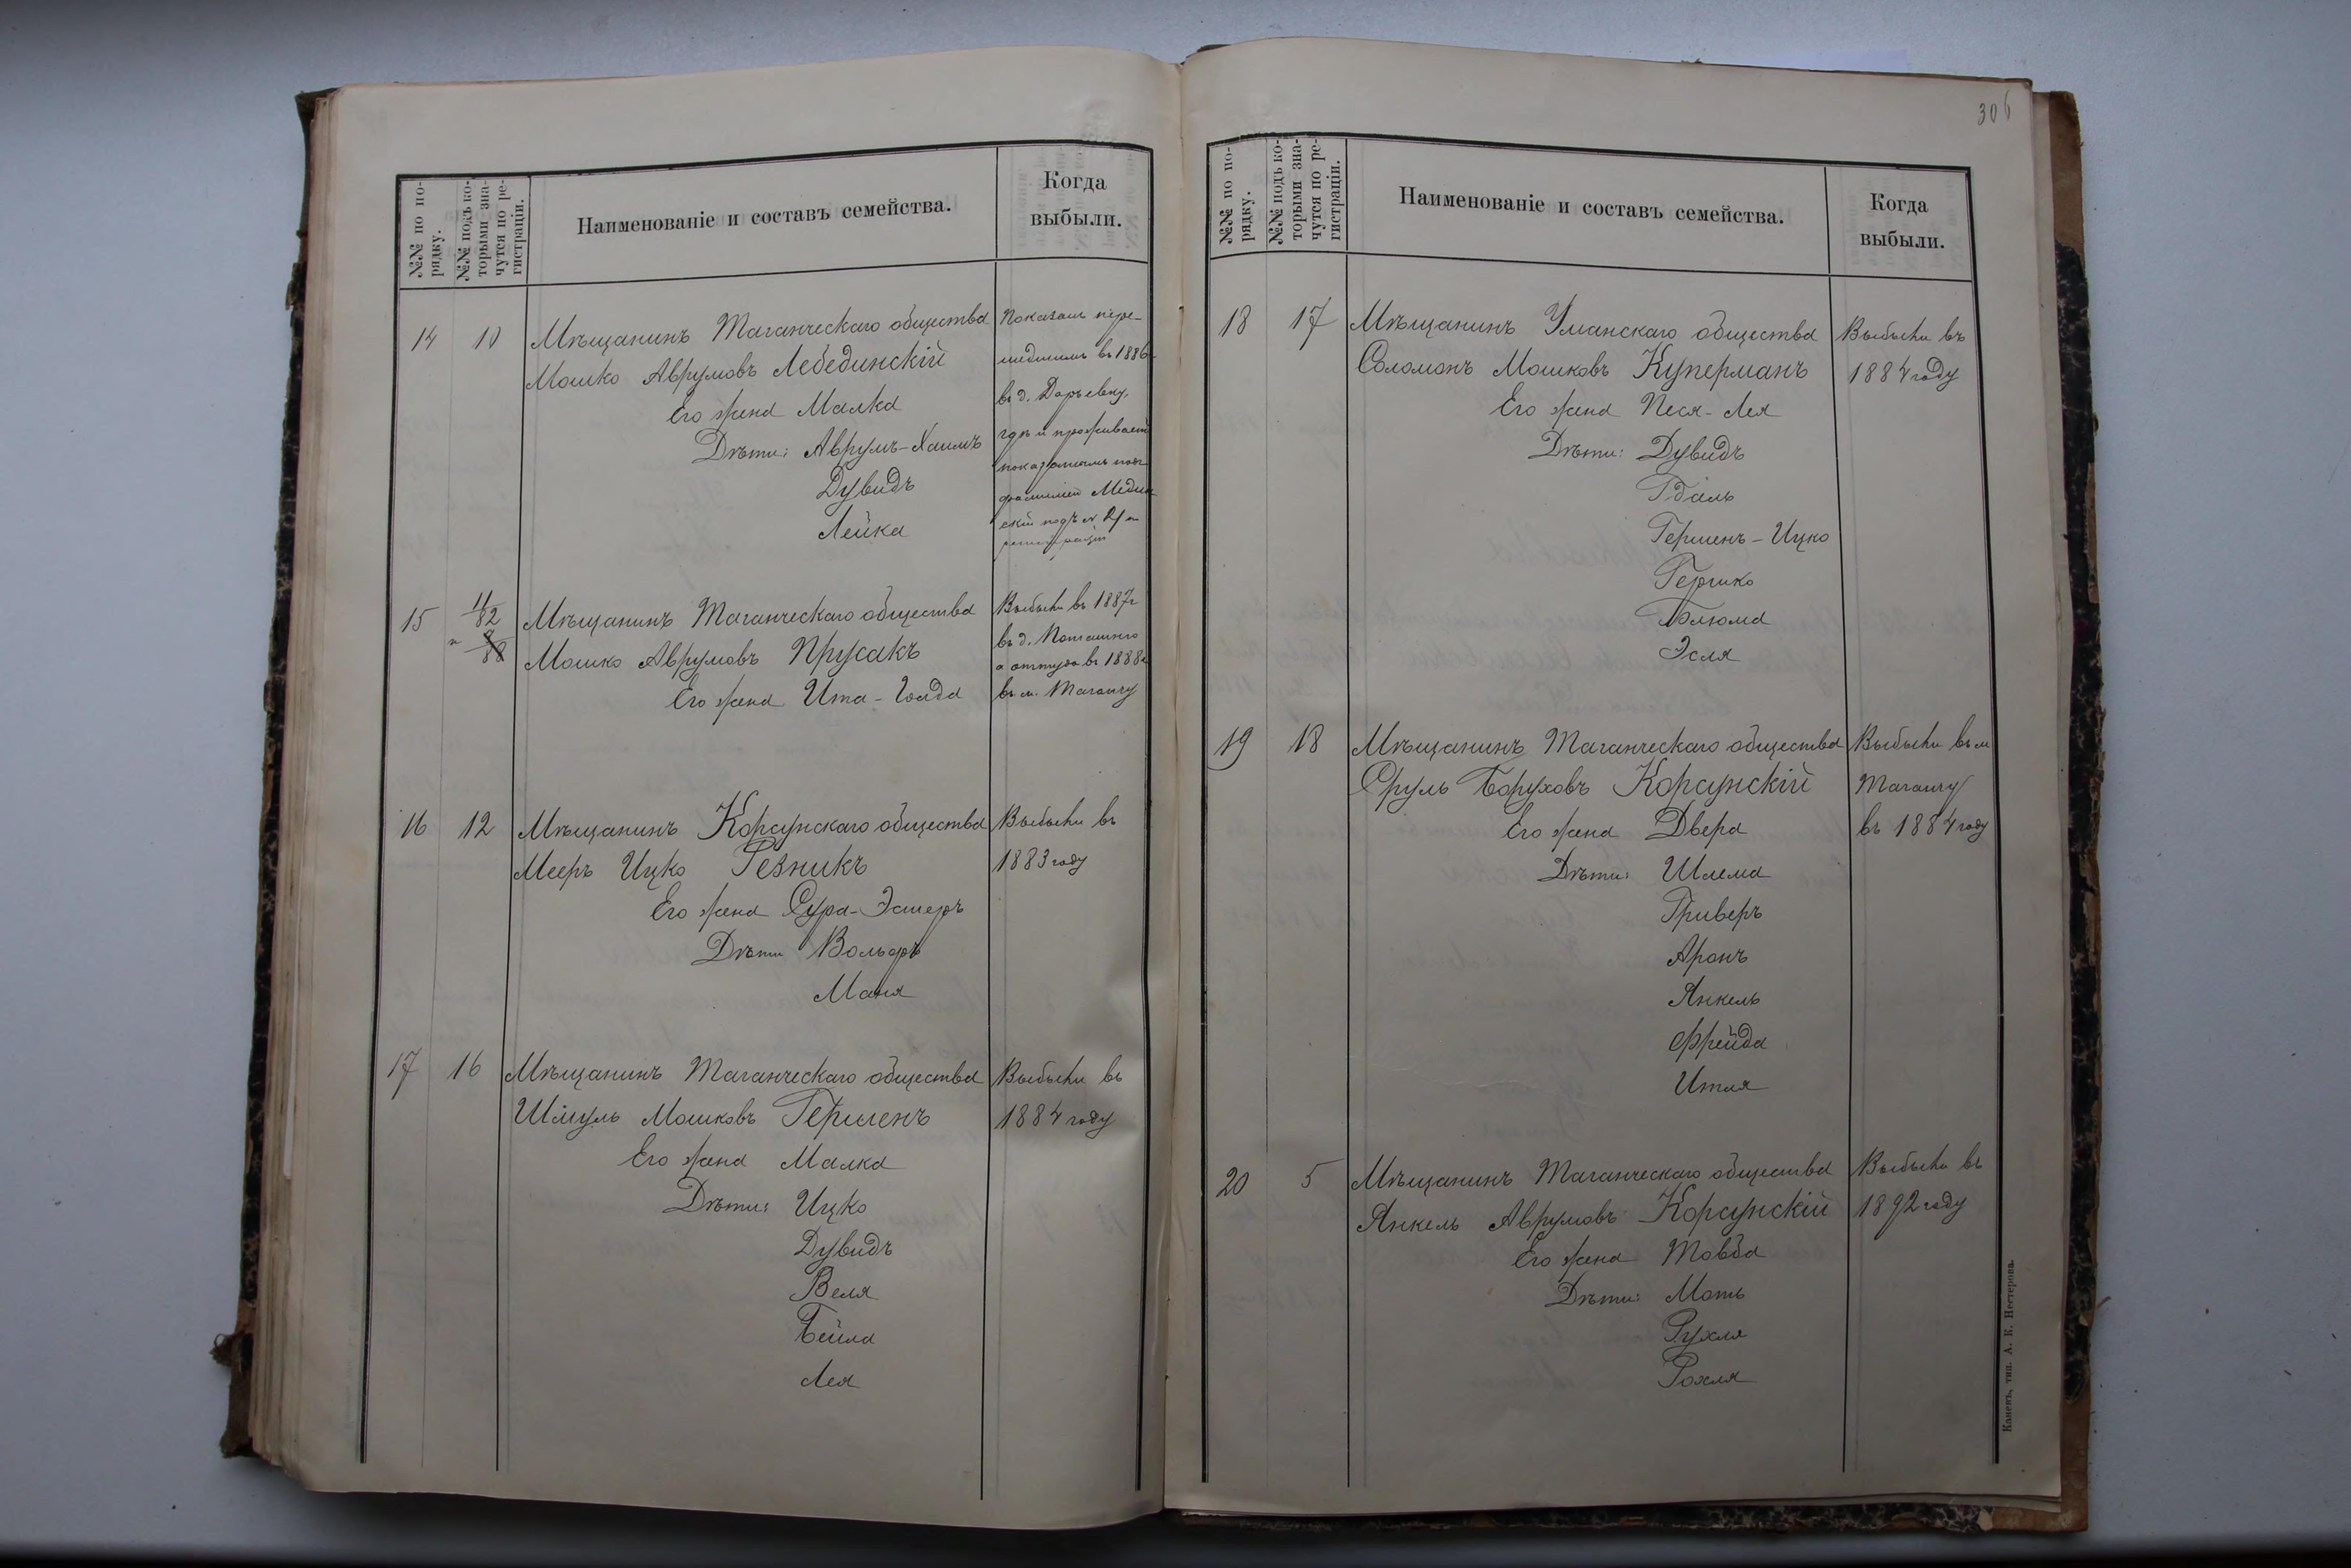 №№ по по-
рядку.
№№ подъ ко-
торыми зна-
чутся по ре-
гистраціи.
Наименованіе и составъ семейства.
Когда
выбыли.
14 10 Мѣщанинъ Таганческаго общества
Мошко Аврумовъ Лебединскій
Его жена Малка
Дѣти: Аврумъ-Хаимъ
Дувидъ
Лейка
Показанъ пере-
шедшимъ въ 1886
въ д. Дарьевку,
гдѣ и проживаетъ
показаннымъ подъ
фамиліей Медин-
скій подъ № 21 по
регистраціи
15 11/82
и 8/88
Мѣщанинъ Таганческаго общества
Мошко Аврумовъ Прусакъ
Его жена Ита-Голда
Выбыли въ 1887г
въ д. Поташню
а оттуда въ 1888г
въ м. Таганчу
16 12 Мѣщанинъ Корсунскаго общества
Мееръ Ицко Резникъ
Его жена Сура-Эстеръ
Дѣти Вольфъ
Маня
Выбыли въ
1883 году
17 16 Мѣщанинъ Таганческаго общества
Шмуль Мошковъ Гершенъ
Его жена Малка
Дѣти: Ицко
Дувидъ
Веля
Бейла
Лея
Выбыли въ
1884 году
306
№№ по по-
рядку.
№№ подъ ко-
торыми зна-
чутся по ре-
гистраціи.
Наименованіе и составъ семейства.
Когда
выбыли.
18 17 Мѣщанинъ Уманскаго общества
Соломонъ Мошковъ Куперманъ
Его жена Песя-Лея
Дѣти: Дувидъ
Гдаль
Гершенъ-Ицко
Гершко
Блюма
Эсля
Выбыли въ
1884 году
19 18 Мѣщанинъ Таганческаго общества
Сруль Боруховъ Корсунскій
Его жена Двера
Дѣти: Шлема
Триверъ
Аронъ
Янкель
Фрейда
Итля
Выбыли въ м
Таганчу
въ 1884 году
20 5 Мѣщанинъ Таганческаго общества
Янкель Аврумовъ Корсунскій
Его жена Товба
Дѣти: Моть
Рухля
Рохля
Выбыли въ
1892 году
Каневъ, тип. А. К. Нестерова.